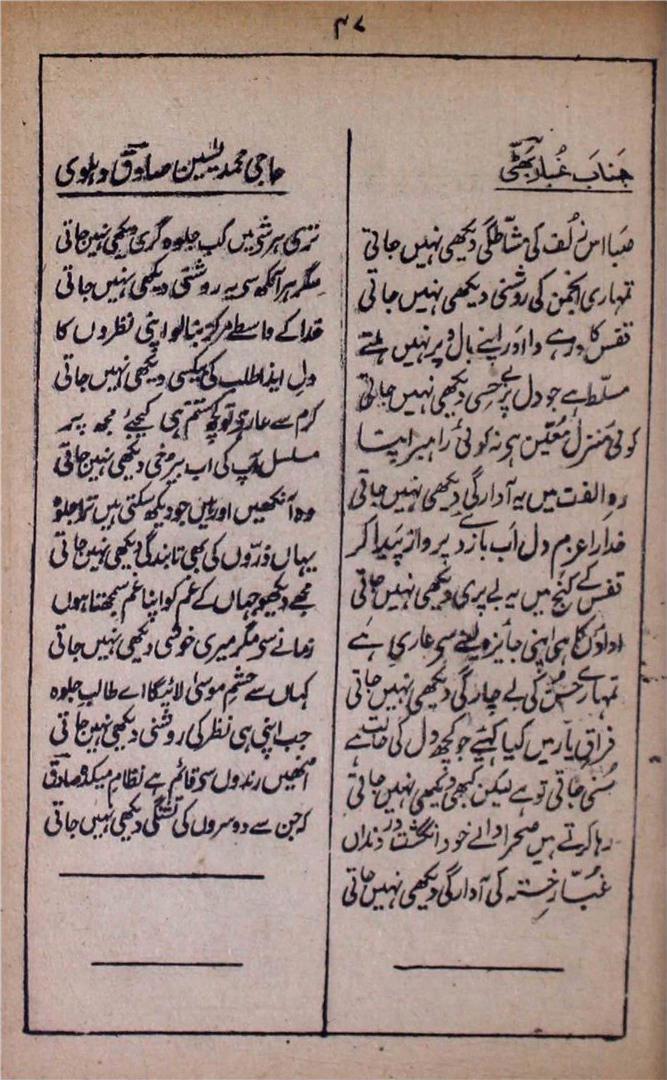 ۴۷
جناب غبار بھٹی
صبا اس زلف کی مشاطگی دیکھی نہیں جاتی
تمہاری انجمن کی روشنی دیکھی نہیں جاتی
قفس کا در ہے وا اور اپنے بال و پر نہیں ہلتے
مسلط ہے جو دل پر بے حسی دیکھی نہیں جاتی
کوئی منزل معین ہی نہ کوئی راہبر اپنا
رہِ الفت میں یہ آوارگی دیکھی نہیں جاتی
خدارا عزم دل اب بازوئے پرواز پیدا کر
قفس کے کنج میں یہ بے پری دیکھی نہیں جاتی
اداؤں کا ہی اپنی جایزہ لینے سی عاری ہے
تمہارے حسن کی بے چارگی دیکھی نہیں جاتی
فراق یار میں کیا کہیئے جو کچھ دل کی حالت ہے
سنی جاتی تو ہے لیکن کبھی دیکھی نہیں جاتی
رہا کرتے ہیں صحرا والے خود انگشت در دنداں
غبّار خستہ کی آوارگی دیکھی نہیں جاتی
حاجی محمد یٰسین صادق دہلوی
تری ہر شی میں کب جلوہ گری دیکھی نہیں جاتی
مگر ہر آنکھ سی یہ روشنی دیکھی نہیں جاتی
خدا کے واسطے مرکز بنا لو اپنی نظروں کا
دلِ ایذا طلب کی بیکسی دیکھی نہیں جاتی
کرم سے عار ہو تو کچھ ستم ہی کیجئے مجھ پر
مسلسل آپ کی اب بیرخی دیکھی نہیں جاتی
وہ آنکھیں اور ہیں جو دیکھ سکتی ہیں ترا جلوہ
یہاں ذرّوں کی بھی تابندگی دیکھی نہیں جاتی
مجھے دیکھو جہاں کے غم کو اپنا غم سمجھتا ہوں
زمانے سی مگر میری خوشی دیکھی نہیں جاتی
کہاں سے چشمِ موسیٰ لائیگا اے طالبِ جلوہ
جب اپنی ہی نظر کی روشنی دیکھی نہیں جاتی
انھیں رندوں سی قائم ہے نظامِ میکدہ صادق
کہ جن سے دوسروں کی تشنگی دیکھی نہیں جاتی